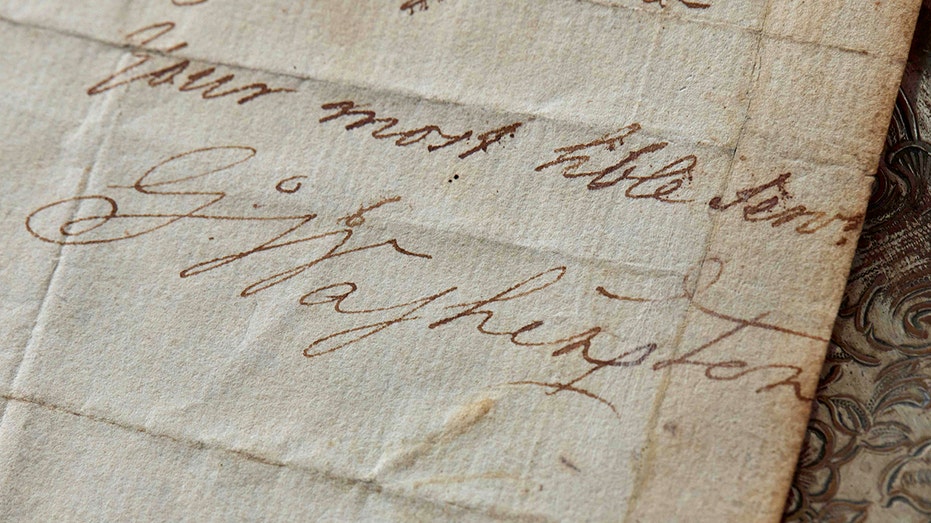 Your most hble Servt
Go: Washington